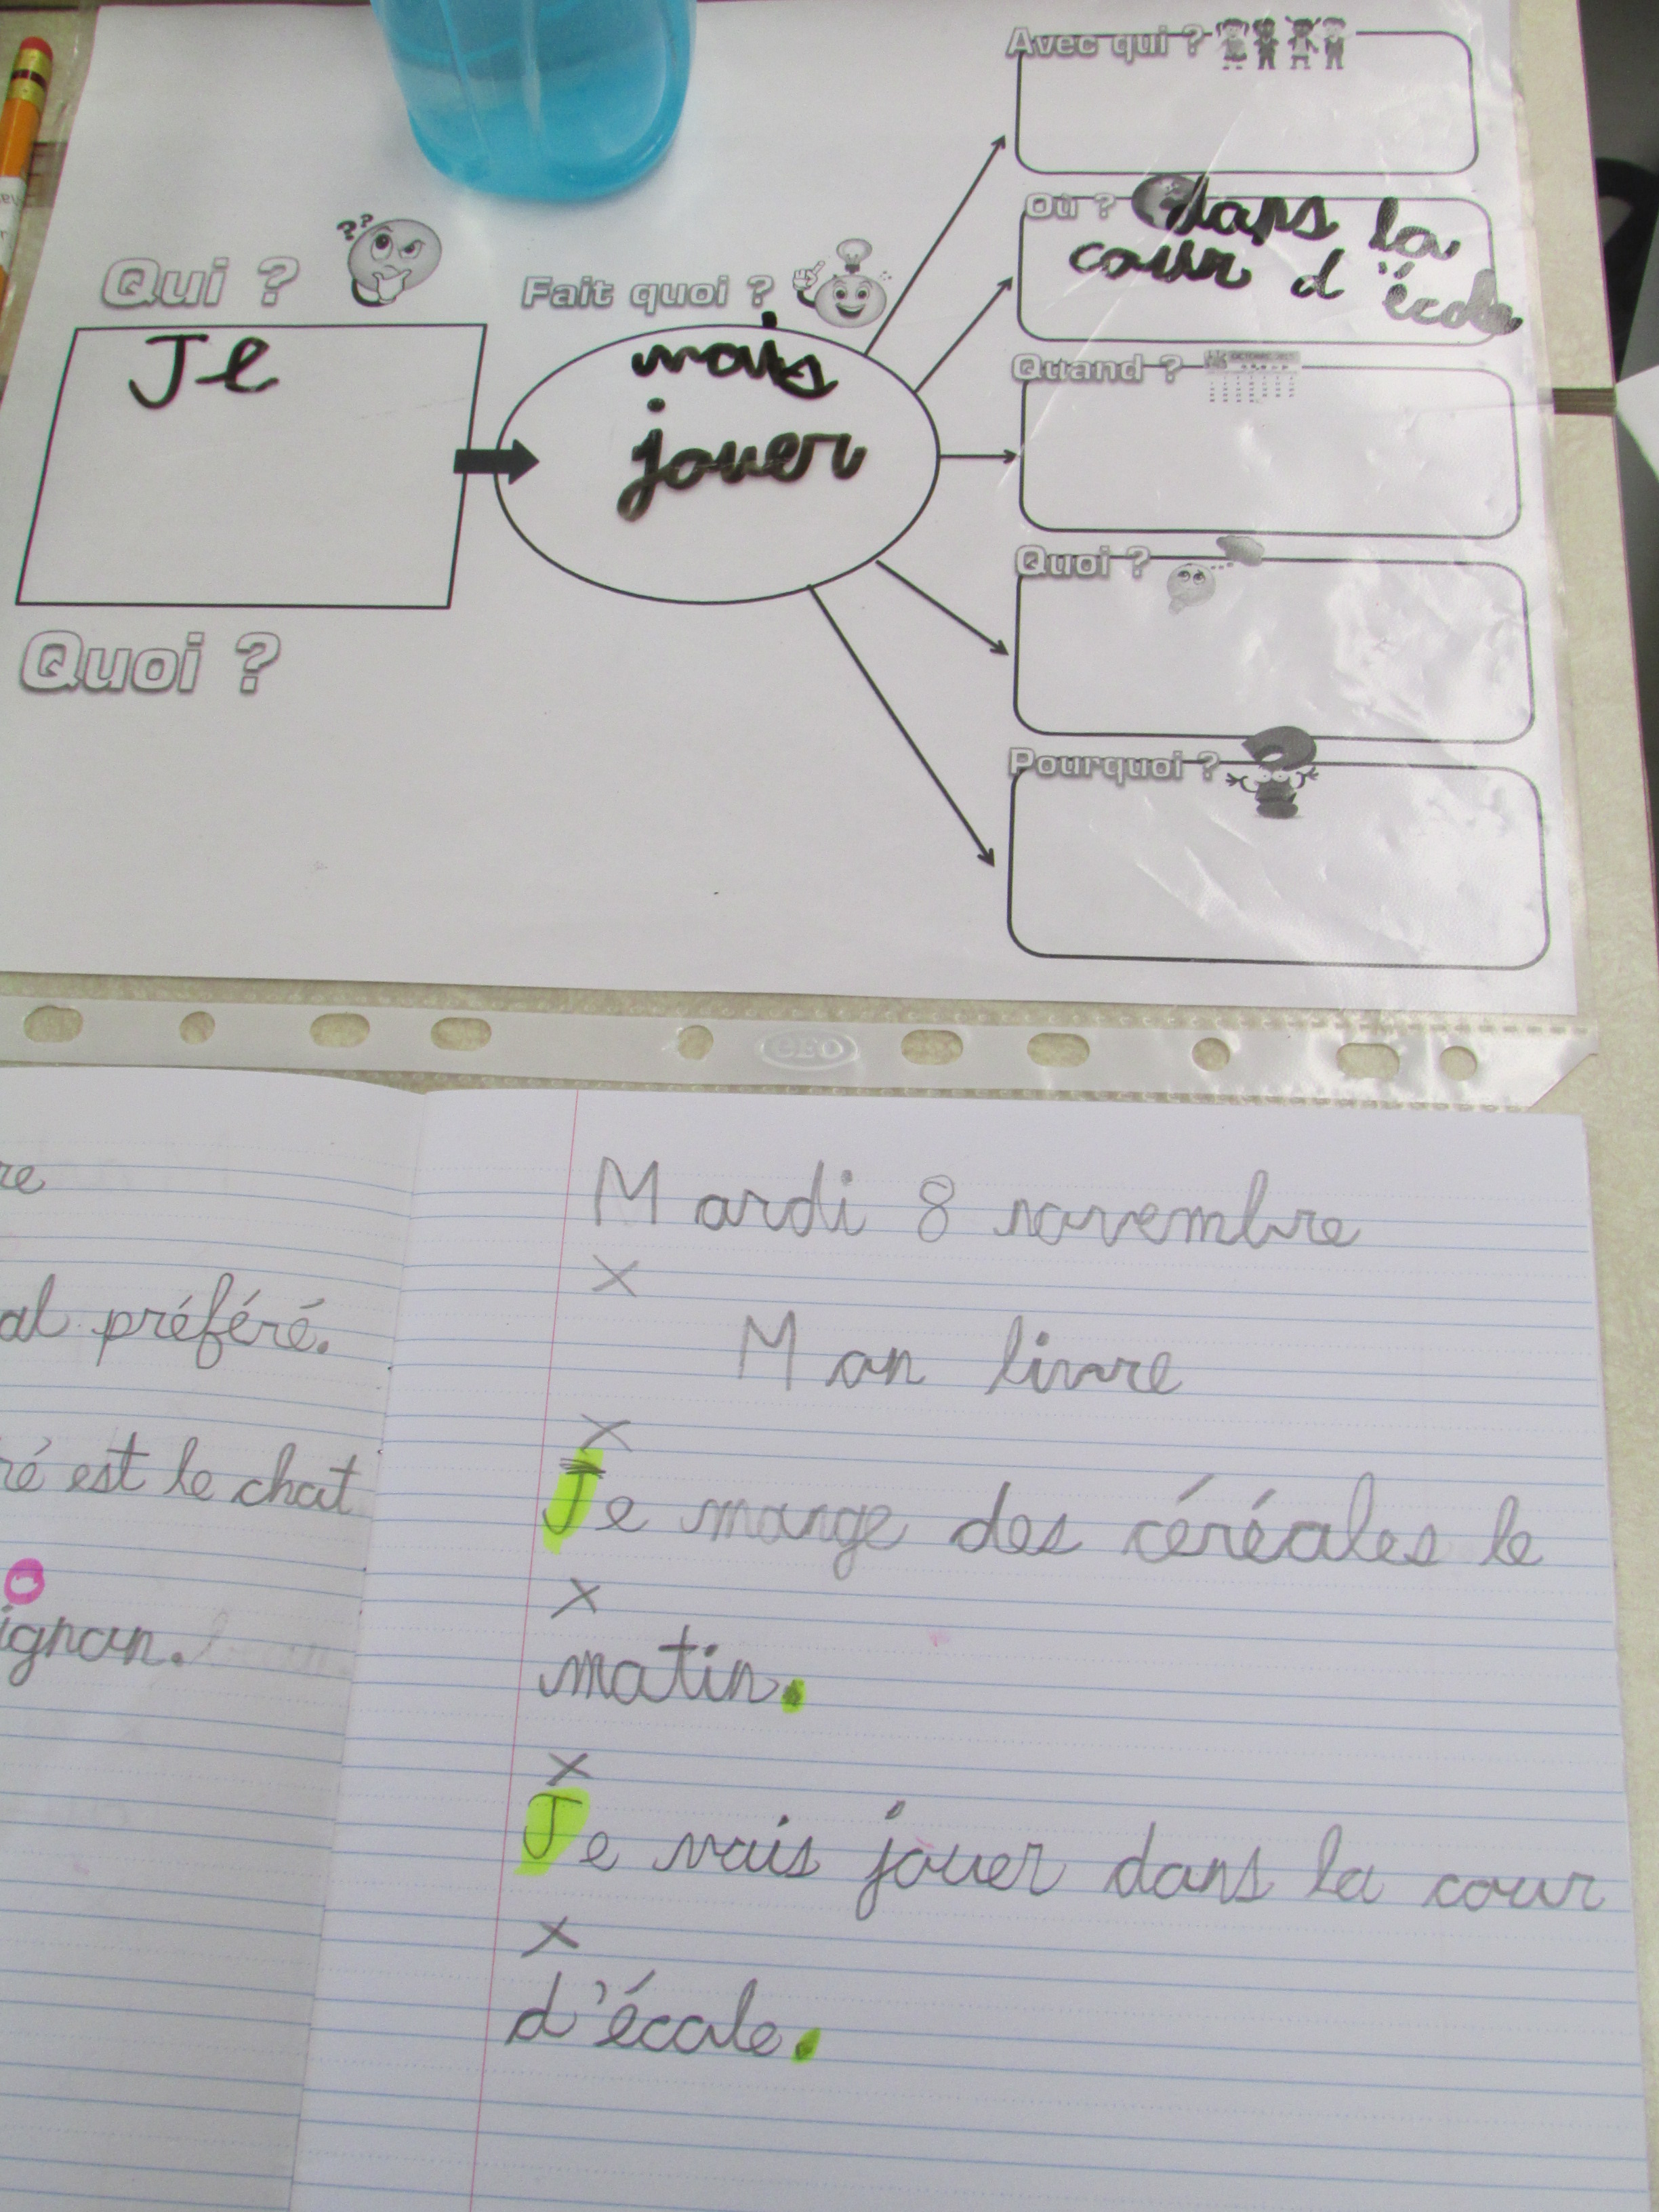 Avec qui ?
Où ? dans la
cour d'école
Qui ?
Je
Fait quoi ?
vais
jouer
Quand ?
Quoi ?
Pourquoi ?
Quoi ?
re
al préféré.
ré est le chat
ignon.
Mardi 8 novembre
Mon livre
Je mange des céréales le
matin.
Je vais jouer dans la cour
d'école.